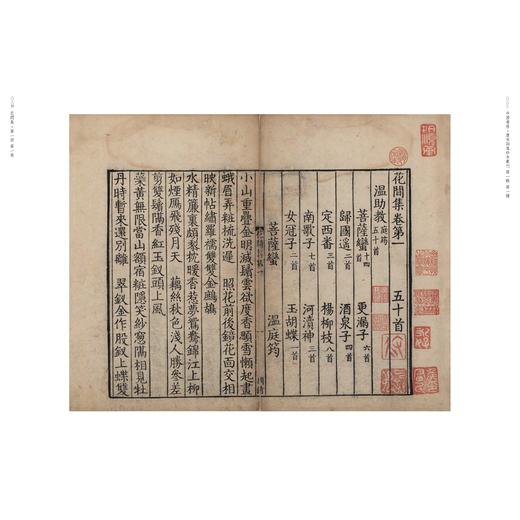 花間集卷第一　五十首
溫助教庭筠 五十首
菩薩蠻十四首　更漏子六首
歸國遙二首　酒泉子四首
定西番三首　楊柳枝八首
南歌子七首　河瀆神三首
女冠子二首　玉胡蝶首
菩薩蠻　溫庭筠
小山重疊金明滅鬢雲欲度香顋雪懶起畫
蛾眉弄粧梳洗遲　照花前後鏡花面交相
映新帖繡羅襦雙雙金鷓鴣
水精簾裏頗黎枕暖香惹夢鴛鴦錦江上柳
如煙鴈飛殘月天　藕絲秋色淺人勝參差
剪雙鬢隔香紅玉釵頭上風
蘂黃無限當山額宿粧隱笑紗窻隔相見牡
丹時暫來還別離　翠釵金作股釵上蝶雙